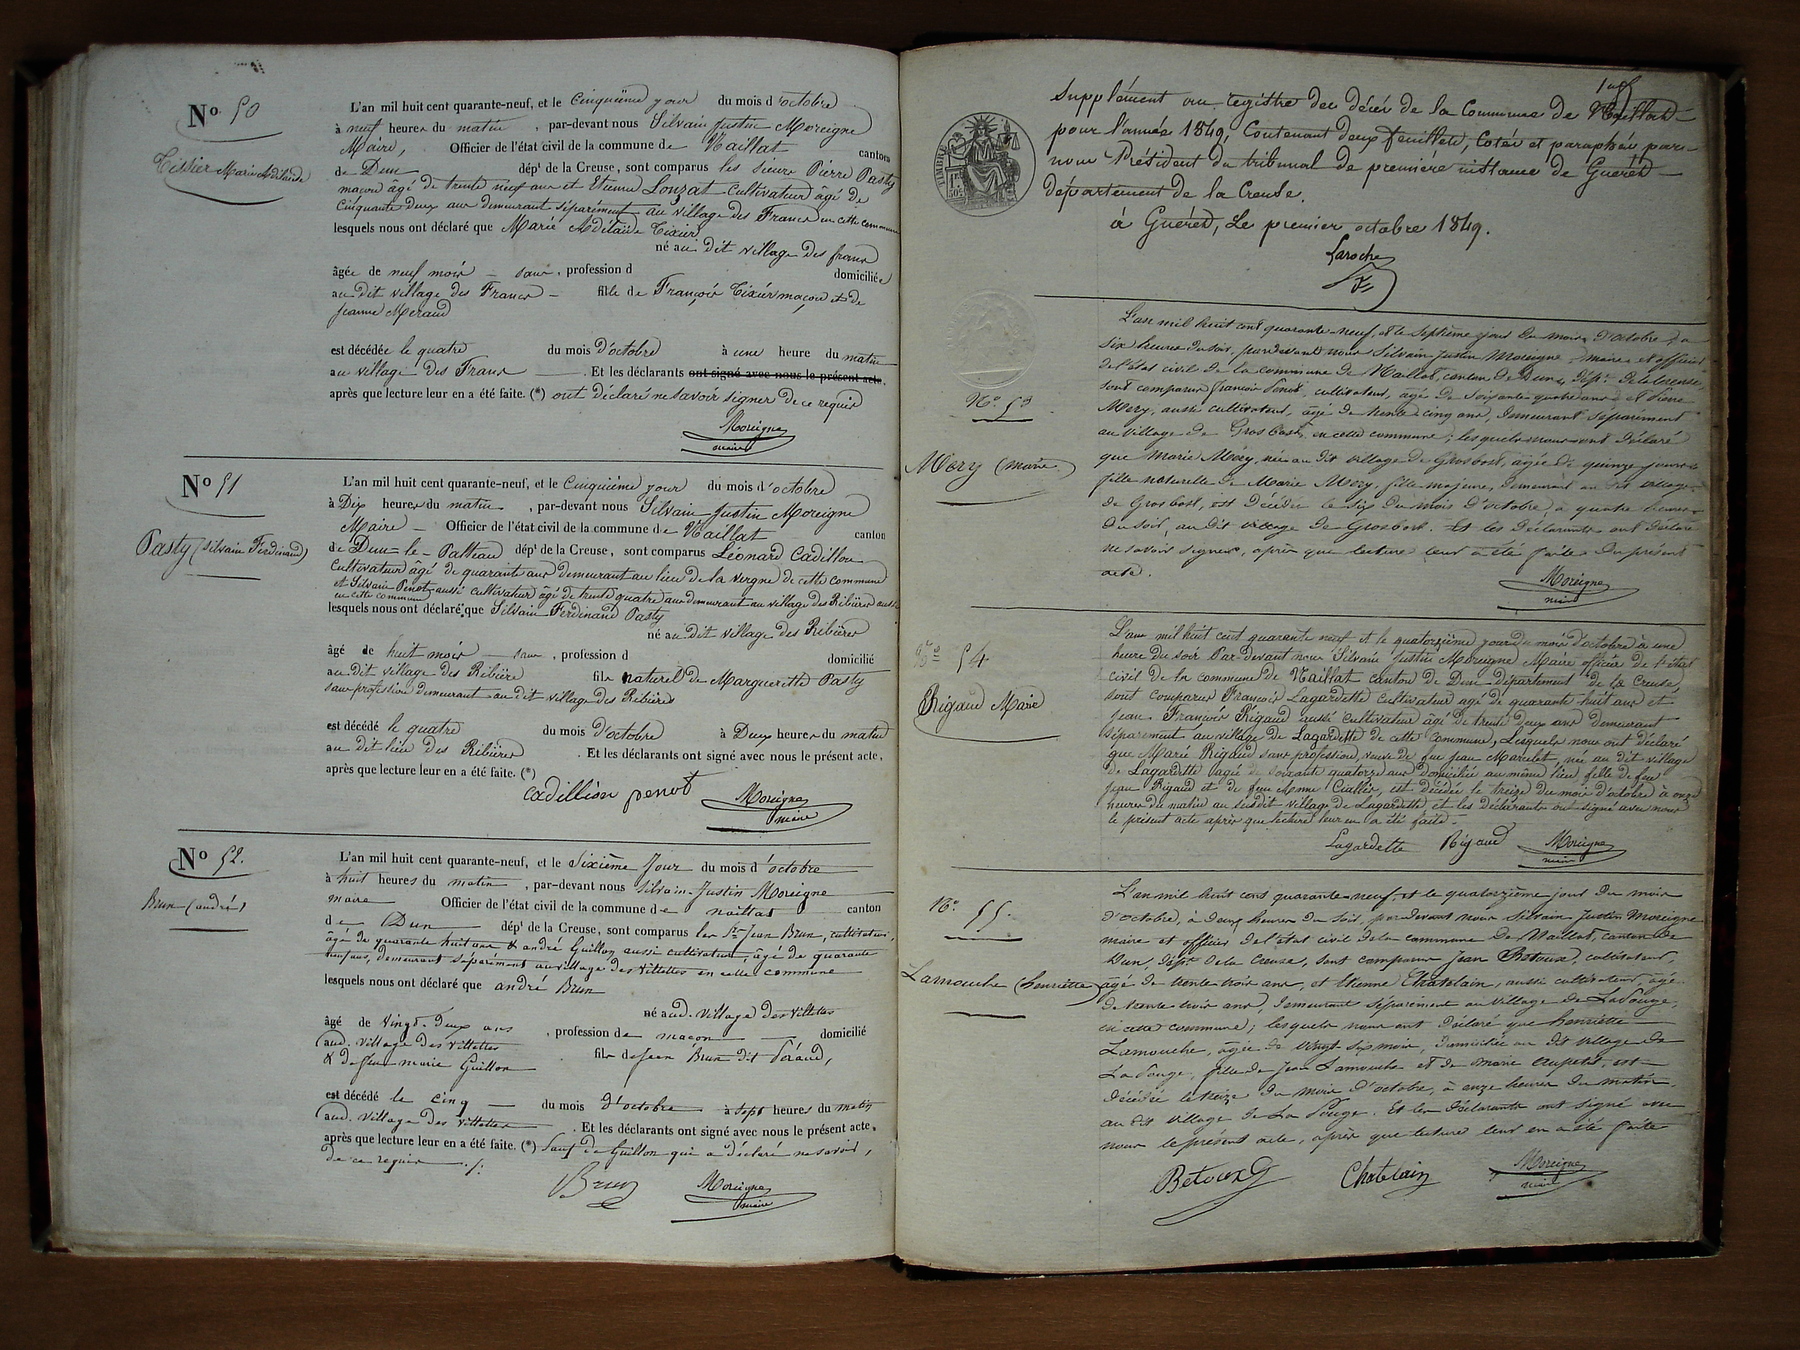 No 50
Tissier Marie Adélaide
L'an mil huit cent quarante-neuf, et le Cinquième jour du mois d'octobre
à neuf heures du matin, par-devant nous Silvain Justin Moreigne
Maire, Officier de l'état civil de la commune de Naillat canton
de Dun dépt de la Creuse, sont comparus les sieurs Pierre Pasty
maçon âgé de trente neuf ans et Etienne Lonzat Cultivateur âgé de
Cinquante deux ans demeurant séparément au village des Francs en cette commune
lesquels nous ont déclaré que Marie Adélaïde Tixier
né au dit village des francs
âgée de neuf mois - sans, profession d domiciliée
au dit village des Francs - fille de François Tixier maçon et de
Jeanne Meraud
est décédée le quatre du mois d'octobre à une heure du matin
au village des Francs. Et les déclarants ont signé avec nous le présent acte,
après que lecture leur en a été faite. (*) ont déclaré ne savoir signer de ce requis
Moreigne
maire
No 51
Pasty (Silvain Ferdinand)
L'an mil huit cent quarante-neuf, et le Cinquième jour du mois d'octobre
à Dix heures du matin, par-devant nous Silvain Justin Moreigne
Maire - Officier de l'état civil de la commune de Naillat canton
de Dun-le-Palleteau dépt de la Creuse, sont comparus Léonard Cadillon
Cultivateur âgé de quarante ans demeurant au lieu de la vergne de cette commune
et Silvain Penot aussi cultivateur âgé de trente quatre ans demeurant au village des Ribières aussi
en cette commune
lesquels nous ont déclaré que Silvain Ferdinand Pasty
né au Dit village des Ribières
âgé de huit mois - sans, profession d domicilié
au dit village des Ribière fils naturel de Margueritte Pasty
sans profession demeurant au dit village des Ribières
est décédé le quatre du mois d'octobre à Deux heures du matin
au dit lieu des Ribières. Et les déclarants ont signé avec nous le présent acte,
après que lecture leur en a été faite. (*)
cadillion penot Moreigne
maire
No 52.
Brun (andré)
L'an mil huit cent quarante-neuf, et le Sixième Jour du mois d'octobre
à huit heures du matin, par-devant nous Silvain-Justin Moreigne
maire Officier de l'état civil de la commune de naillat canton
de Dun dépt de la Creuse, sont comparus les Srs Jean Brun, cultivateur,
âgé de quarante huit ans & andré Guillon aussi cultivateur, âgé de quarante
ans, demeurant séparément au village des Villettes en cette commune
lesquels nous ont déclaré que andré Brun
né aud. village des villettes
âgé de vingt-deux ans, profession de maçon domicilié
aud. village des villettes fils de Jean Brun dit
& de feue marie Guillon
est décédé le cinq du mois d'octobre à sept heures du matin
aud. village des villettes. Et les déclarants ont signé avec nous le présent acte,
après que lecture leur en a été faite. (*) Sauf de Guillon qui a déclaré ne savoir,
de ce requis ./.
Brun Moreigne
maire
Supplément au registre des décès de la Commune de Naillat
pour l'année 1849, Contenant deux feuillets, cotés et paraphés par
nous Président du tribunal de première instance de Guéret
département de la Creuse.
à Guéret, Le premier octobre 1849.
Laroche
TIMBRE
No 53
Mery (marie)
L'an mil huit cent quarante-neuf, et le Septième jour du mois d'octobre à
Six heures du soir, pardevant nous Silvain Justin Moreigne, maire et officier
de l'état civil de la commune de Naillat, canton de Dun, dépt de la Creuse,
sont comparus françois Penot, cultivateur, âgé de Soixante quatre ans et Pierre
Mery, aussi cultivateur, âgé de trente cinq ans, demeurant séparément
au village de Grosbost, en cette commune; lesquels nous ont déclaré
que Marie Mery, née au dit village de Grosbost, âgée de quinze jours
fille naturelle de Marie Mery, fille majeure, demeurant au dit village
de Grosbost, est décédée le Six du mois d'octobre à quatre heures
du soir, au dit village de Grosbost. Et les déclarants ont déclaré
ne savoir signer, après que lecture leur a été faite du présent
acte.
Moreigne
maire
54
Rigaud Marie
L'an mil huit cent quarante neuf et le quatorzième jour du mois d'octobre à une
heure du soir Par-devant nous Silvain Justin Moreigne Maire officier de l'état
civil de la commune de Naillat canton de Dun département de la Creuse
sont comparus François Lagardette Cultivateur âgé de quarante huit ans et
Jean François Rigaud aussi cultivateur âgé de trente deux ans demeurant
séparément au village de Lagardette de cette commune, Lesquels nous ont déclaré
que Marie Rigaud sans profession, veuve de feu Jean Marcelet, née au dit village
de Lagardette âgée de soixante quatorze ans domiciliée au même lieu fille de feu
Jean Rigaud et de feue Anne, est décédée le treize du mois d'octobre à onze
heures du matin au susdit village de Lagardette et les déclarants ont signé avec nous
le présent acte après que lecture leur en a été faite.
Lagardette Rigaud Moreigne
maire
No. 55.
Lamouche (henriette)
L'an mil huit cent quarante-neuf, et le quatorzième jour du mois
d'octobre, à deux heures du soir, par-devant nous Silvain Justin Moreigne
maire et officier de l'état civil de la commune de Naillat, canton de
Dun, dépt de la Creuse, sont comparus Jean Betoux, cultivateur,
âgé de trente trois ans, et Etienne Chatelain, aussi cultivateur, âgé
de trente trois ans, demeurant séparément au village de La Vouge,
en cette commune; lesquels nous ont déclaré que henriette
Lamouche, âgée de vingt six mois, domiciliée au dit village de
La Vouge, fille de Jean Lamouche et de marie Aupetit, est
décédée le treize du mois d'octobre, à onze heures du matin,
au dit village de La Vouge. Et les déclarants ont signé avec
nous le présent acte, après que lecture leur en a été faite
Betoux Chatelain Moreigne
maire